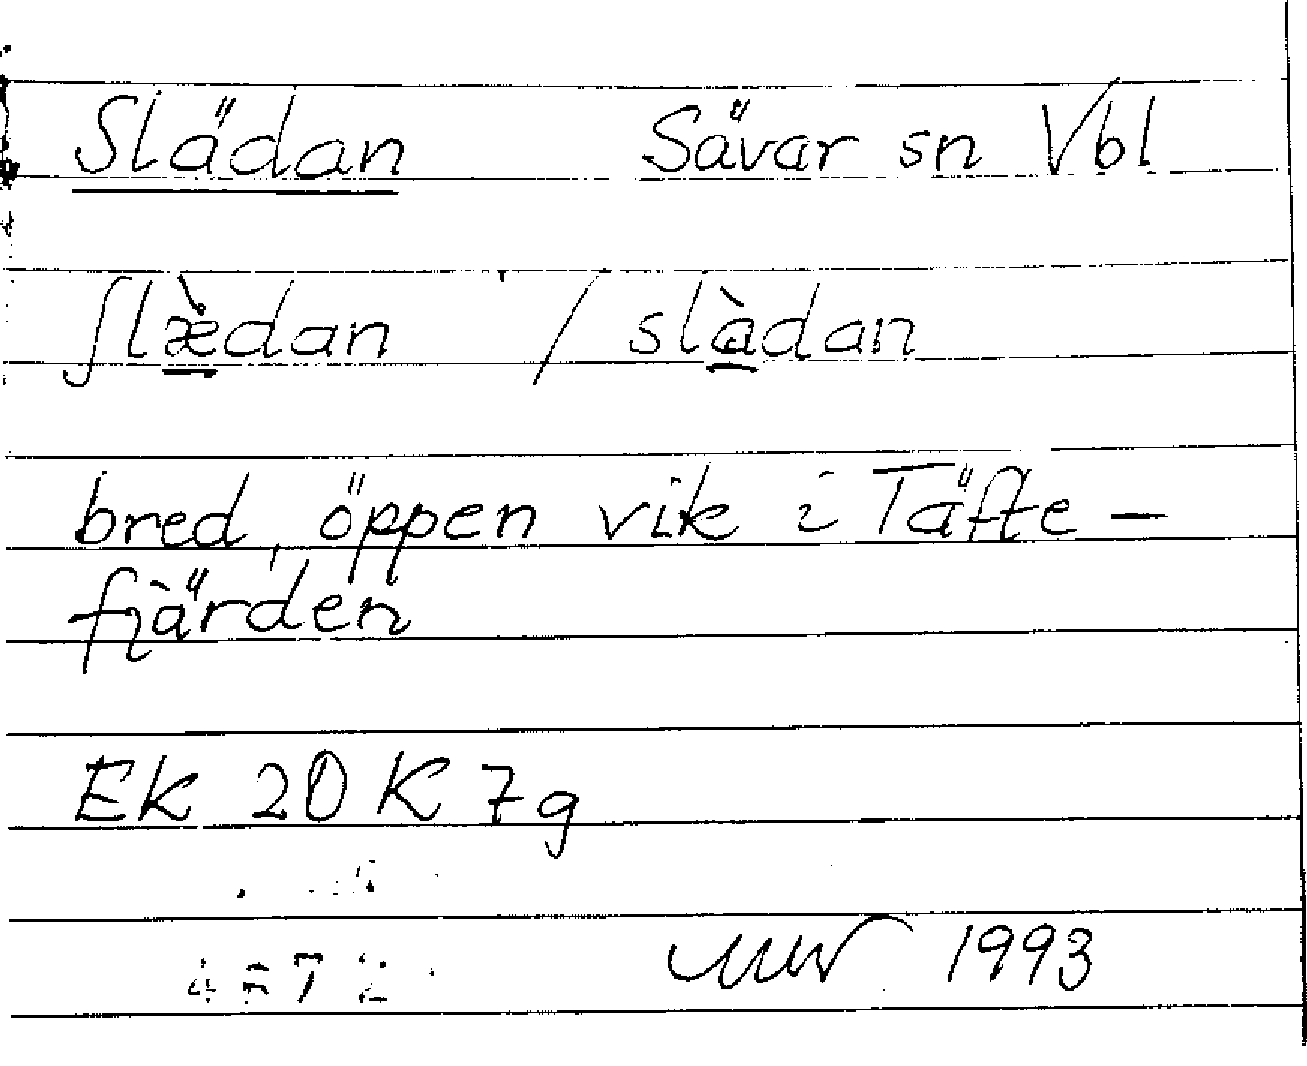 Slädan Sävar sn Vbl
ʃlæ̀dan / slàdan
bred, öppen vik i Täfte-
fjärden
Ek 20 K 7g
1993